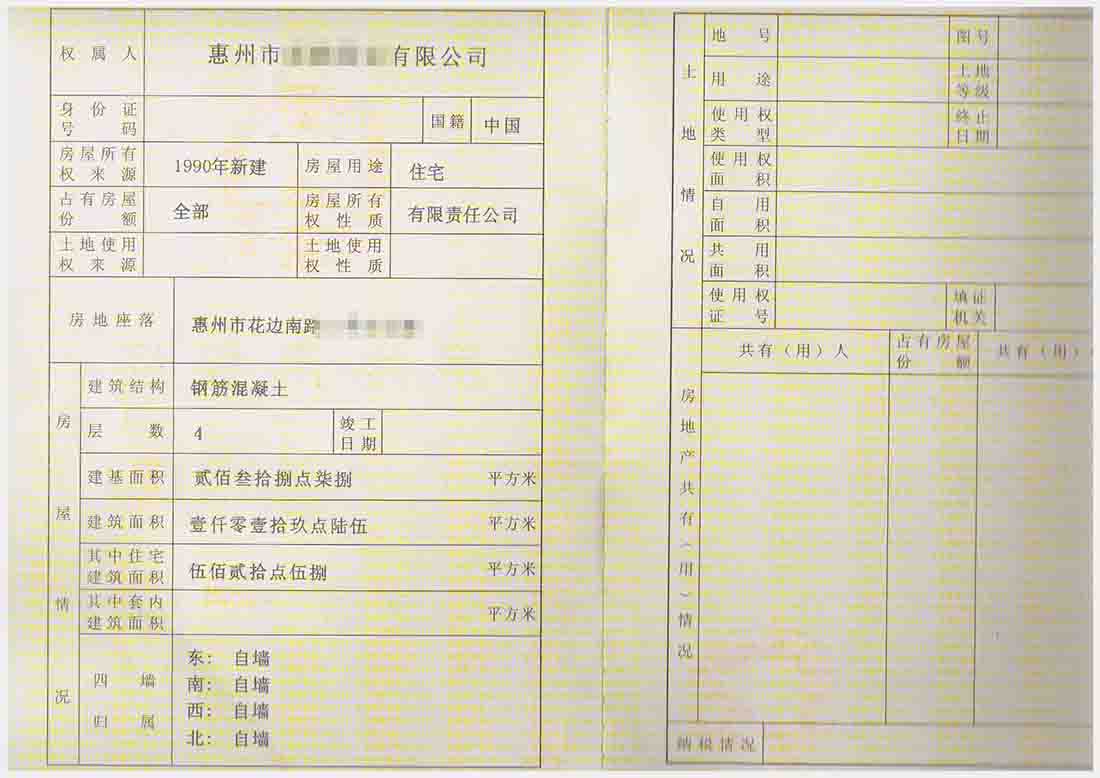 权属人 惠州市 有限公司
身份证号码 国籍 中国
房屋所有权来源 1990年新建 房屋用途 住宅
占有房屋份额 全部 房屋所有权性质 有限责任公司
土地使用权来源 土地使用权性质
房地座落 惠州市花边南路
房屋情况
建筑结构 钢筋混凝土
层数 4 竣工日期
建基面积 贰佰叁拾捌点柒捌 平方米
建筑面积 壹仟零壹拾玖点陆伍 平方米
其中住宅建筑面积 伍佰贰拾点伍捌 平方米
其中套内建筑面积 平方米
四墙归属
东: 自墙
南: 自墙
西: 自墙
北: 自墙
土地情况
地号 图号
用途 土地等级
使用权类型 终止日期
使用权面积
自用面积
共用面积
使用权证号 填证机关
房地产共有(用)情况
共有(用)人 占有房屋份额 共有(用)
纳税情况